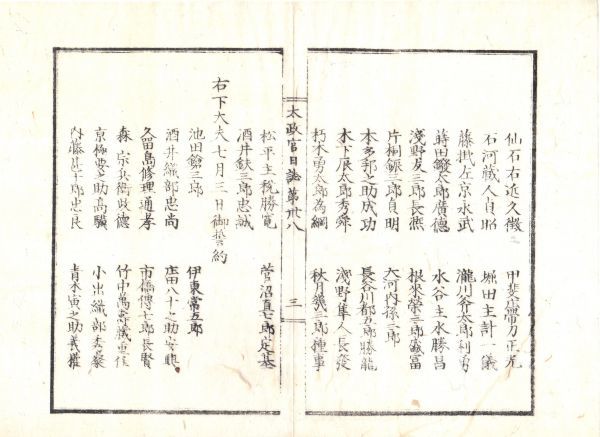 仙石右近久徴
甲斐庄帯刀正光
石河蔵人貞昭
堀田主計一儀
藤掛左京永武
瀧川斧太郎利勇
蒔田鏓太郎廣徳
水谷主水勝昌
浅野友三郎長燕
根来栄三郎盛富
片桐鋠三郎貞明
大河内孫三郎
本多邦之助成功
長谷川都五郎勝龍
木下辰太郎秀舜
浅野隼人長発
朽木勇太郎為綱
秋月幾三郎種事
太政官日誌第卅八
三
松平主税勝寛
菅沼真七郎定基
酒井鈥三郎忠誠
右下大夫七月三日御誓約
池田鎗三郎
伊東常五郎
酒井織部忠尚
庄田八十之助安興
久留島修理通孝
市橋傳七郎長賢
森宗兵衛政徳
竹中萬寿蔵重任
京極要之助高驥
小出織部秀粲
内藤甚十郎忠良
青木寅之助義權